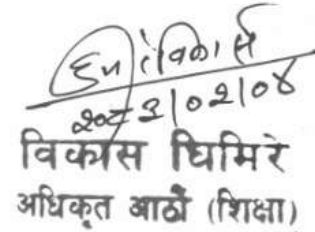 २०८३/०२/०४
विकास घिमिरे
अधिकृत आठौं (शिक्षा)